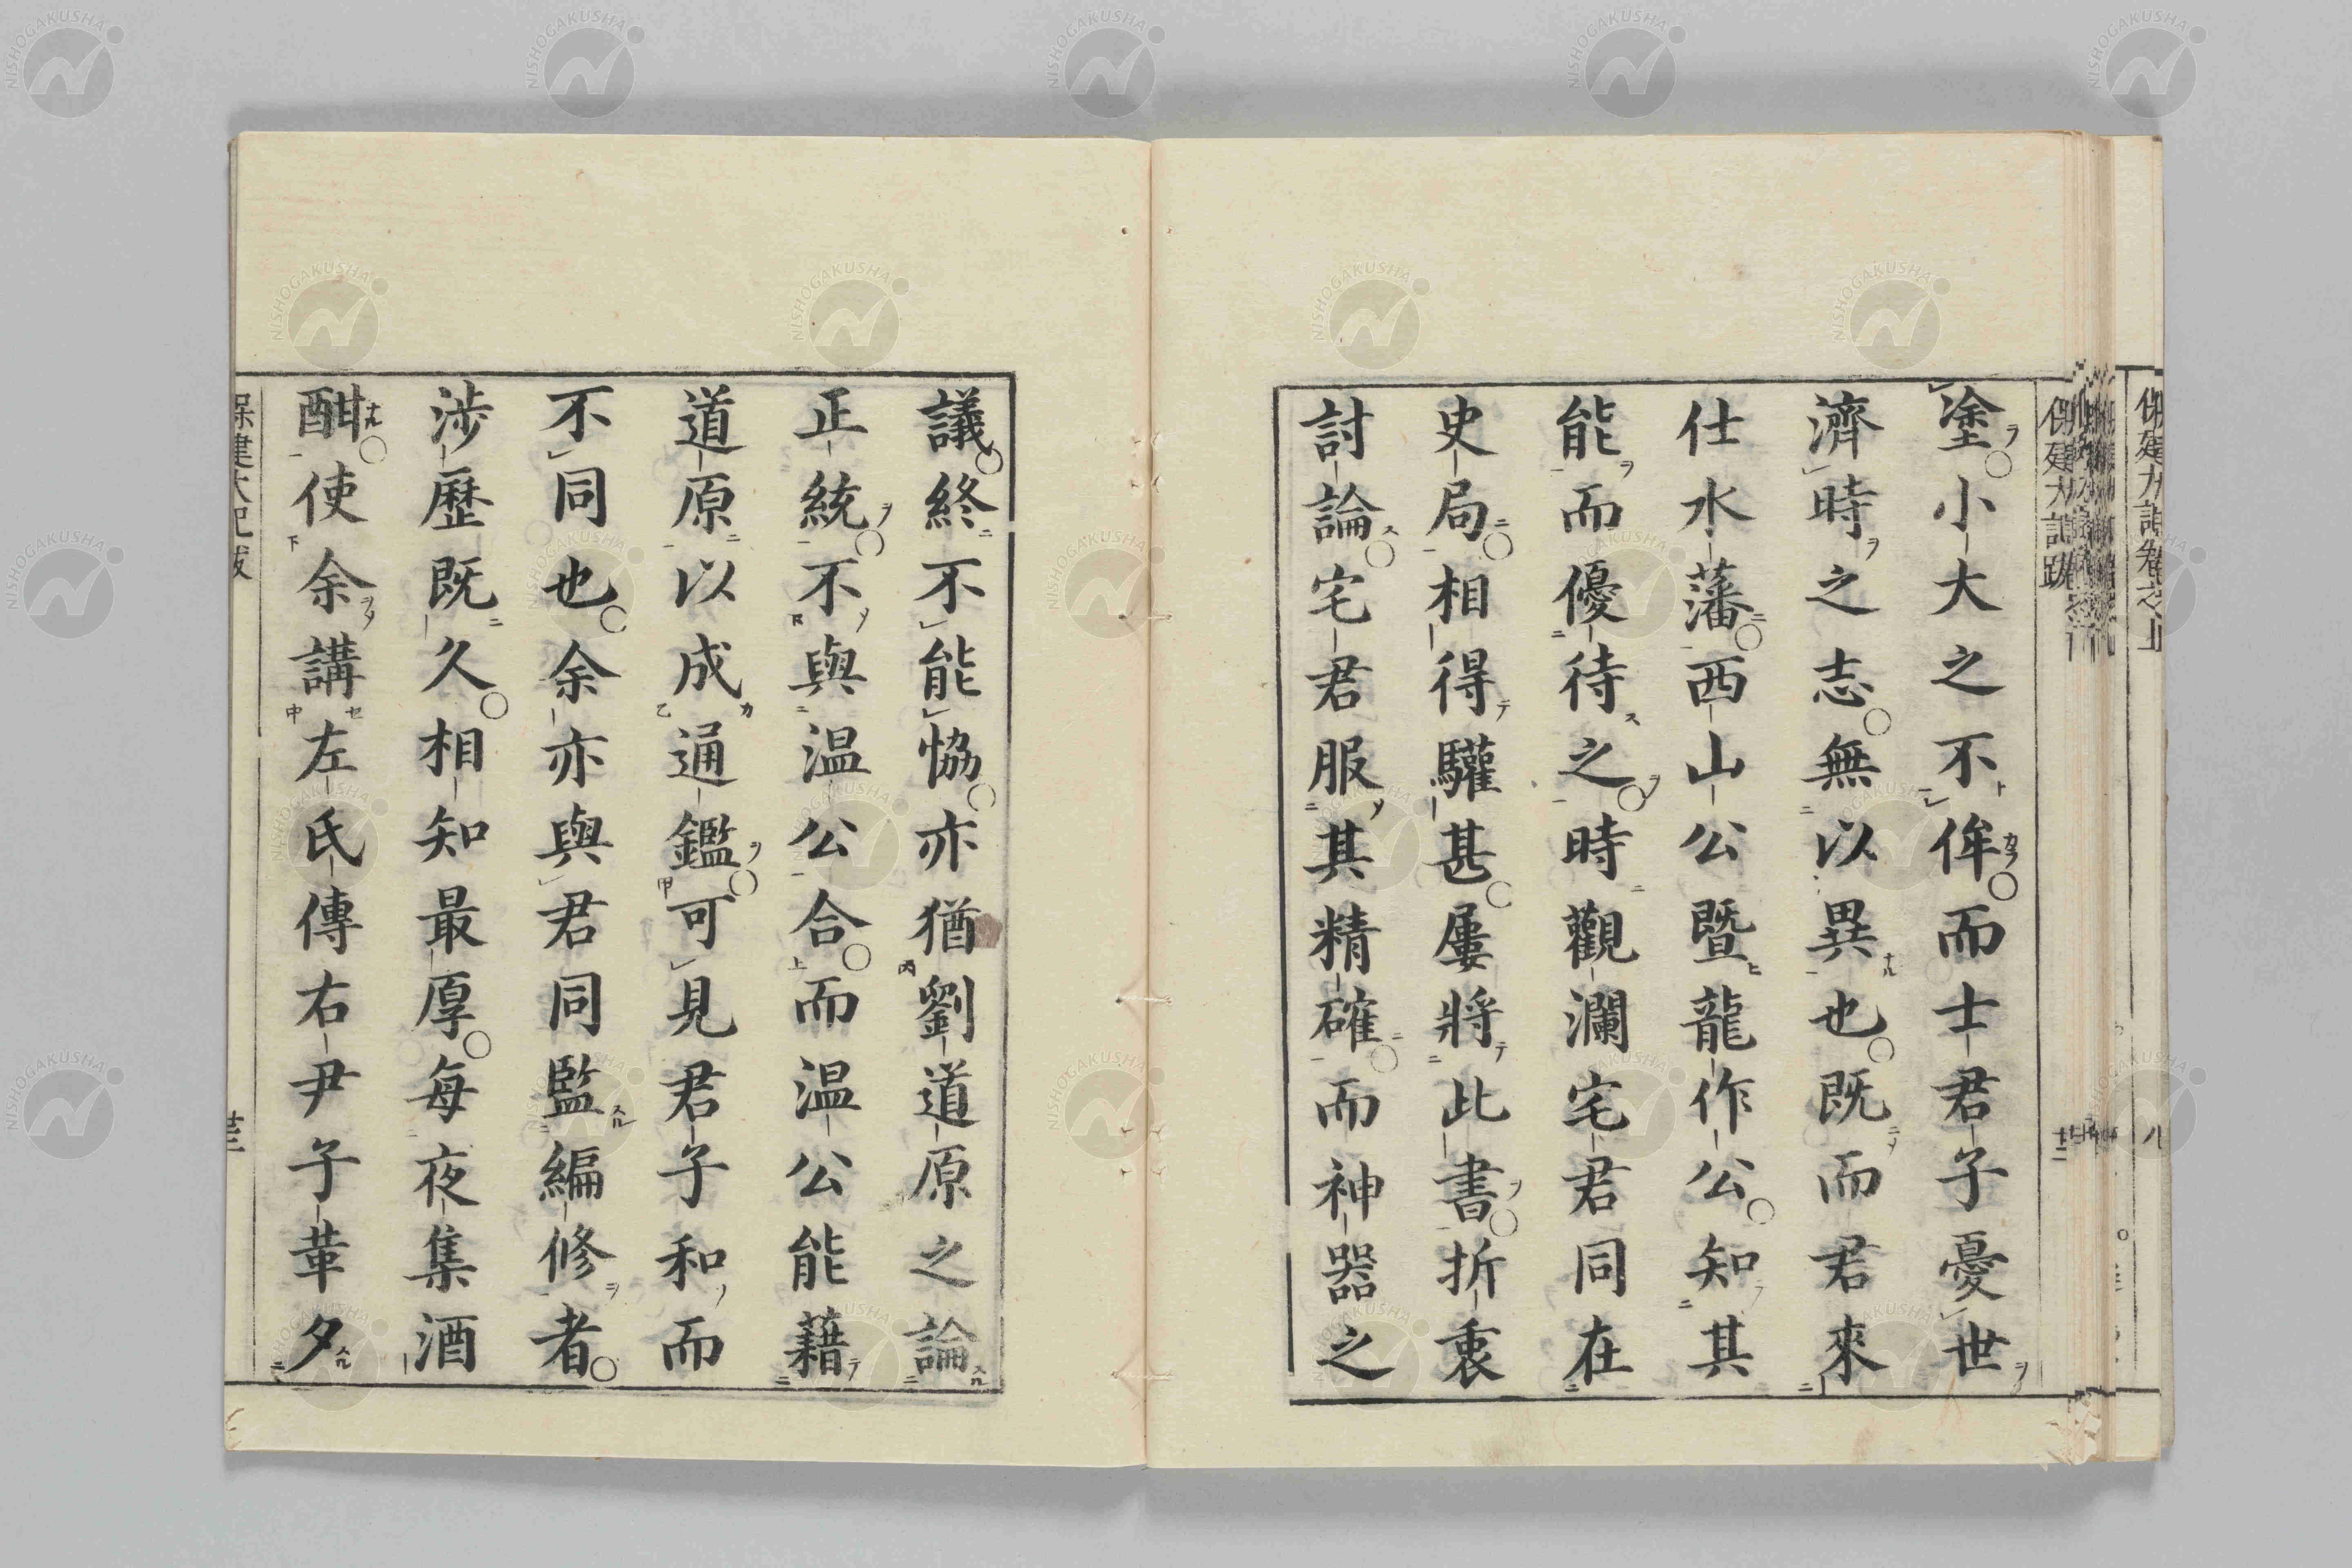 塗小大之不侔而士君子憂世
濟時之志無以異也既而君來
仕水藩西山公暨龍作公知其
能而優待之時觀瀾宅君同在
史局相得驩甚屢將此書折衷
討論宅君服其精確而神器之
議終不能恊亦猶劉道原之論
正統不與温公合而温公能藉
道原以成通鑑可見君子和而
不同也余亦與君同監編修者
涉歷既久相知最厚每夜集酒
酣使余講左氏傳右尹子革夕
保建大記跋
十三
保建大記跋
十二
NISHOGAKUSHA